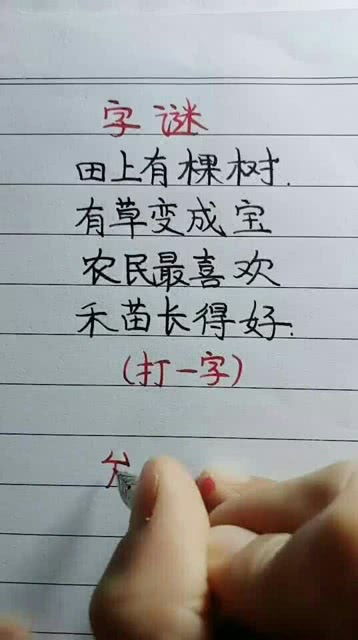 字谜
田上有棵树.
有草变成宝
农民最喜欢
禾苗长得好.
(打一字)